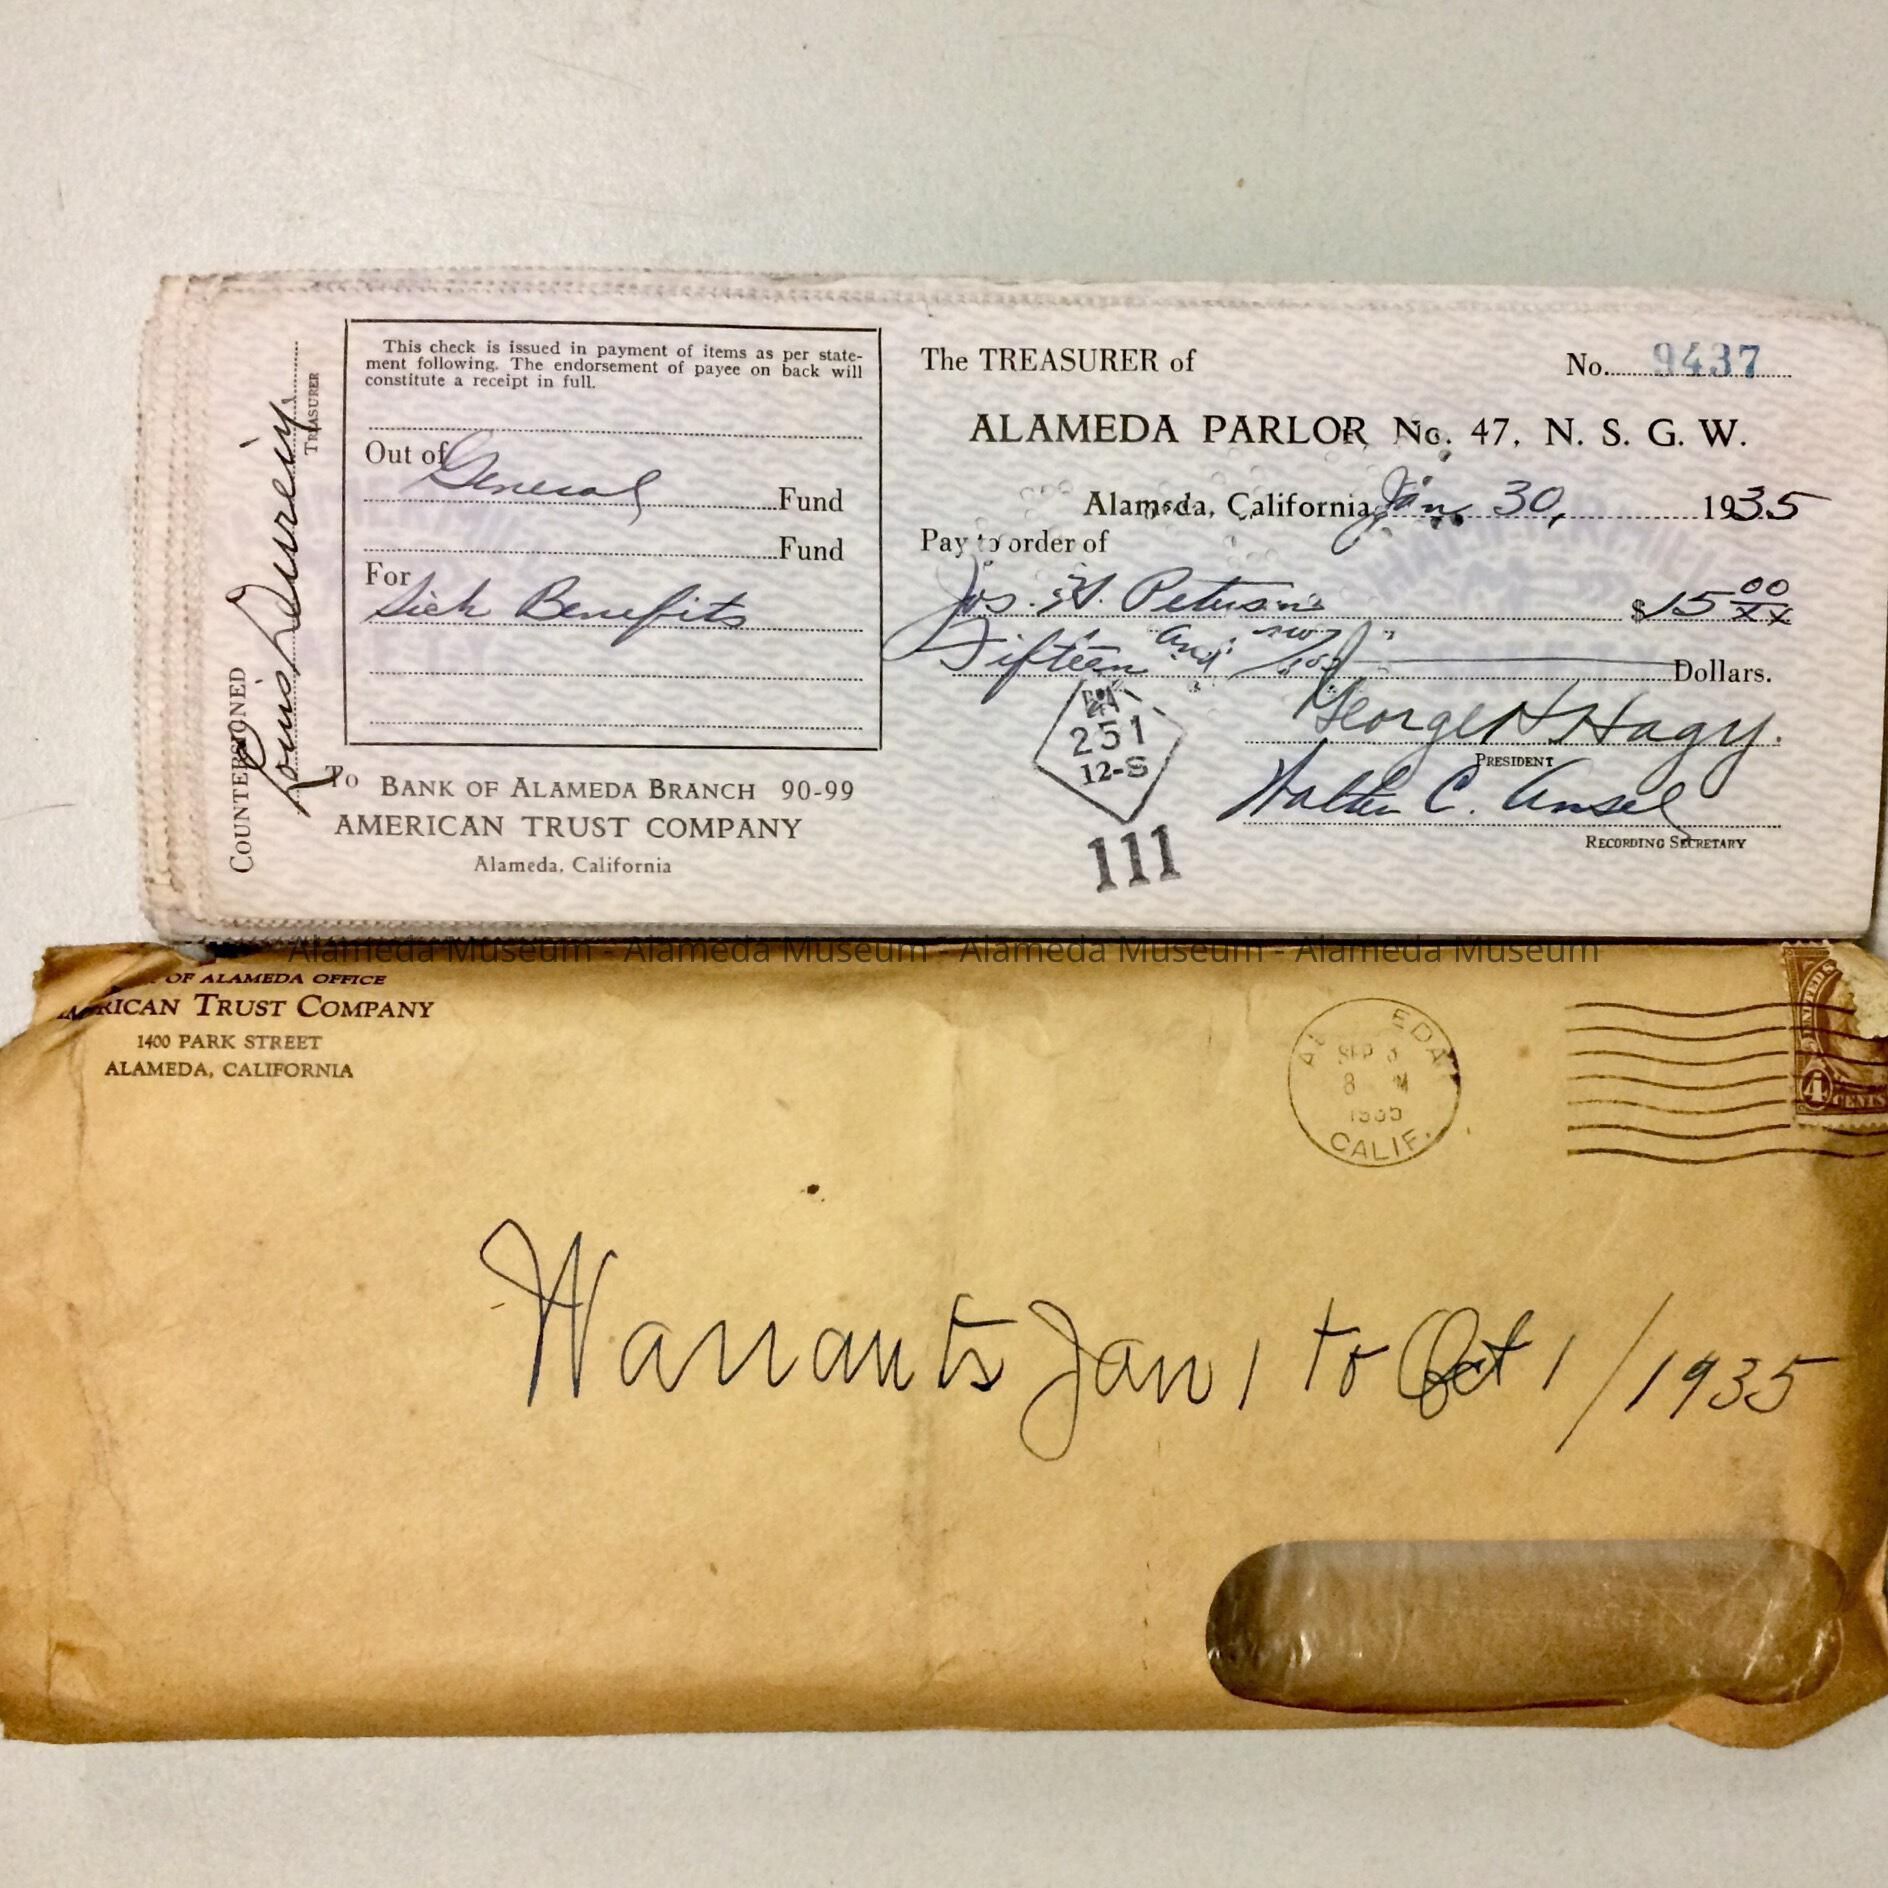 This check is issued in payment of items as per state-
ment following. The endorsement of payee on back will
constitute a receipt in full.
Out of General Fund
Fund
For Sick Benefits
COUNTERSIGNED Louis
TREASURER
To BANK OF ALAMEDA BRANCH 90-99
AMERICAN TRUST COMPANY
Alameda, California
The TREASURER of
No. 9437
ALAMEDA PARLOR No. 47, N. S. G. W.
Alameda, California, Jan. 30, 1935
Pay to order of
Jos. H. Peterson $15 00/xx
Fifteen and no/100 Dollars.
251
12-S
111
George H. Hagy.
PRESIDENT
Walter C. Ansel
RECORDING SECRETARY
Alameda Museum - Alameda Museum - Alameda Museum - Alameda Museum
OF ALAMEDA OFFICE
RICAN TRUST COMPANY
1400 PARK STREET
ALAMEDA, CALIFORNIA
AL EDA
SEP
8 M
1935
CALIF.
4
CENTS
Warrants Jan 1 to Oct 1/1935